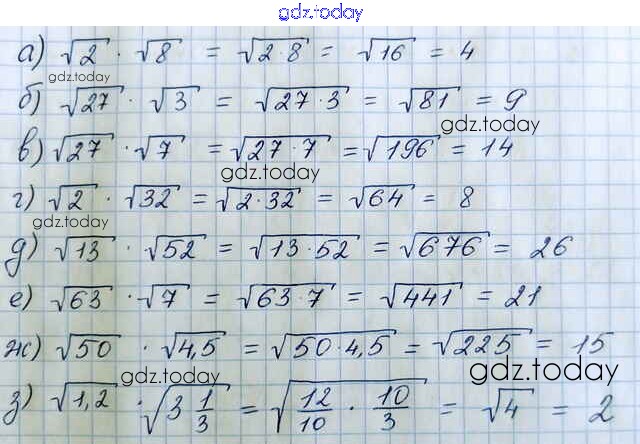 gdz.today
а) √2 · √8 = √2·8 = √16 = 4
gdz.today
б) √27 · √3 = √27·3 = √81 = 9
gdz.today
в) √27 · √7 = √27·7 = √196 = 14
gdz.today
г) √2 · √32 = √2·32 = √64 = 8
gdz.today
д) √13 · √52 = √13·52 = √676 = 26
е) √63 · √7 = √63·7 = √441 = 21
ж) √50 · √4,5 = √50·4,5 = √225 = 15
gdz.today gdz.today
з) √1,2 · √3 1/3 = √12/10 · 10/3 = √4 = 2